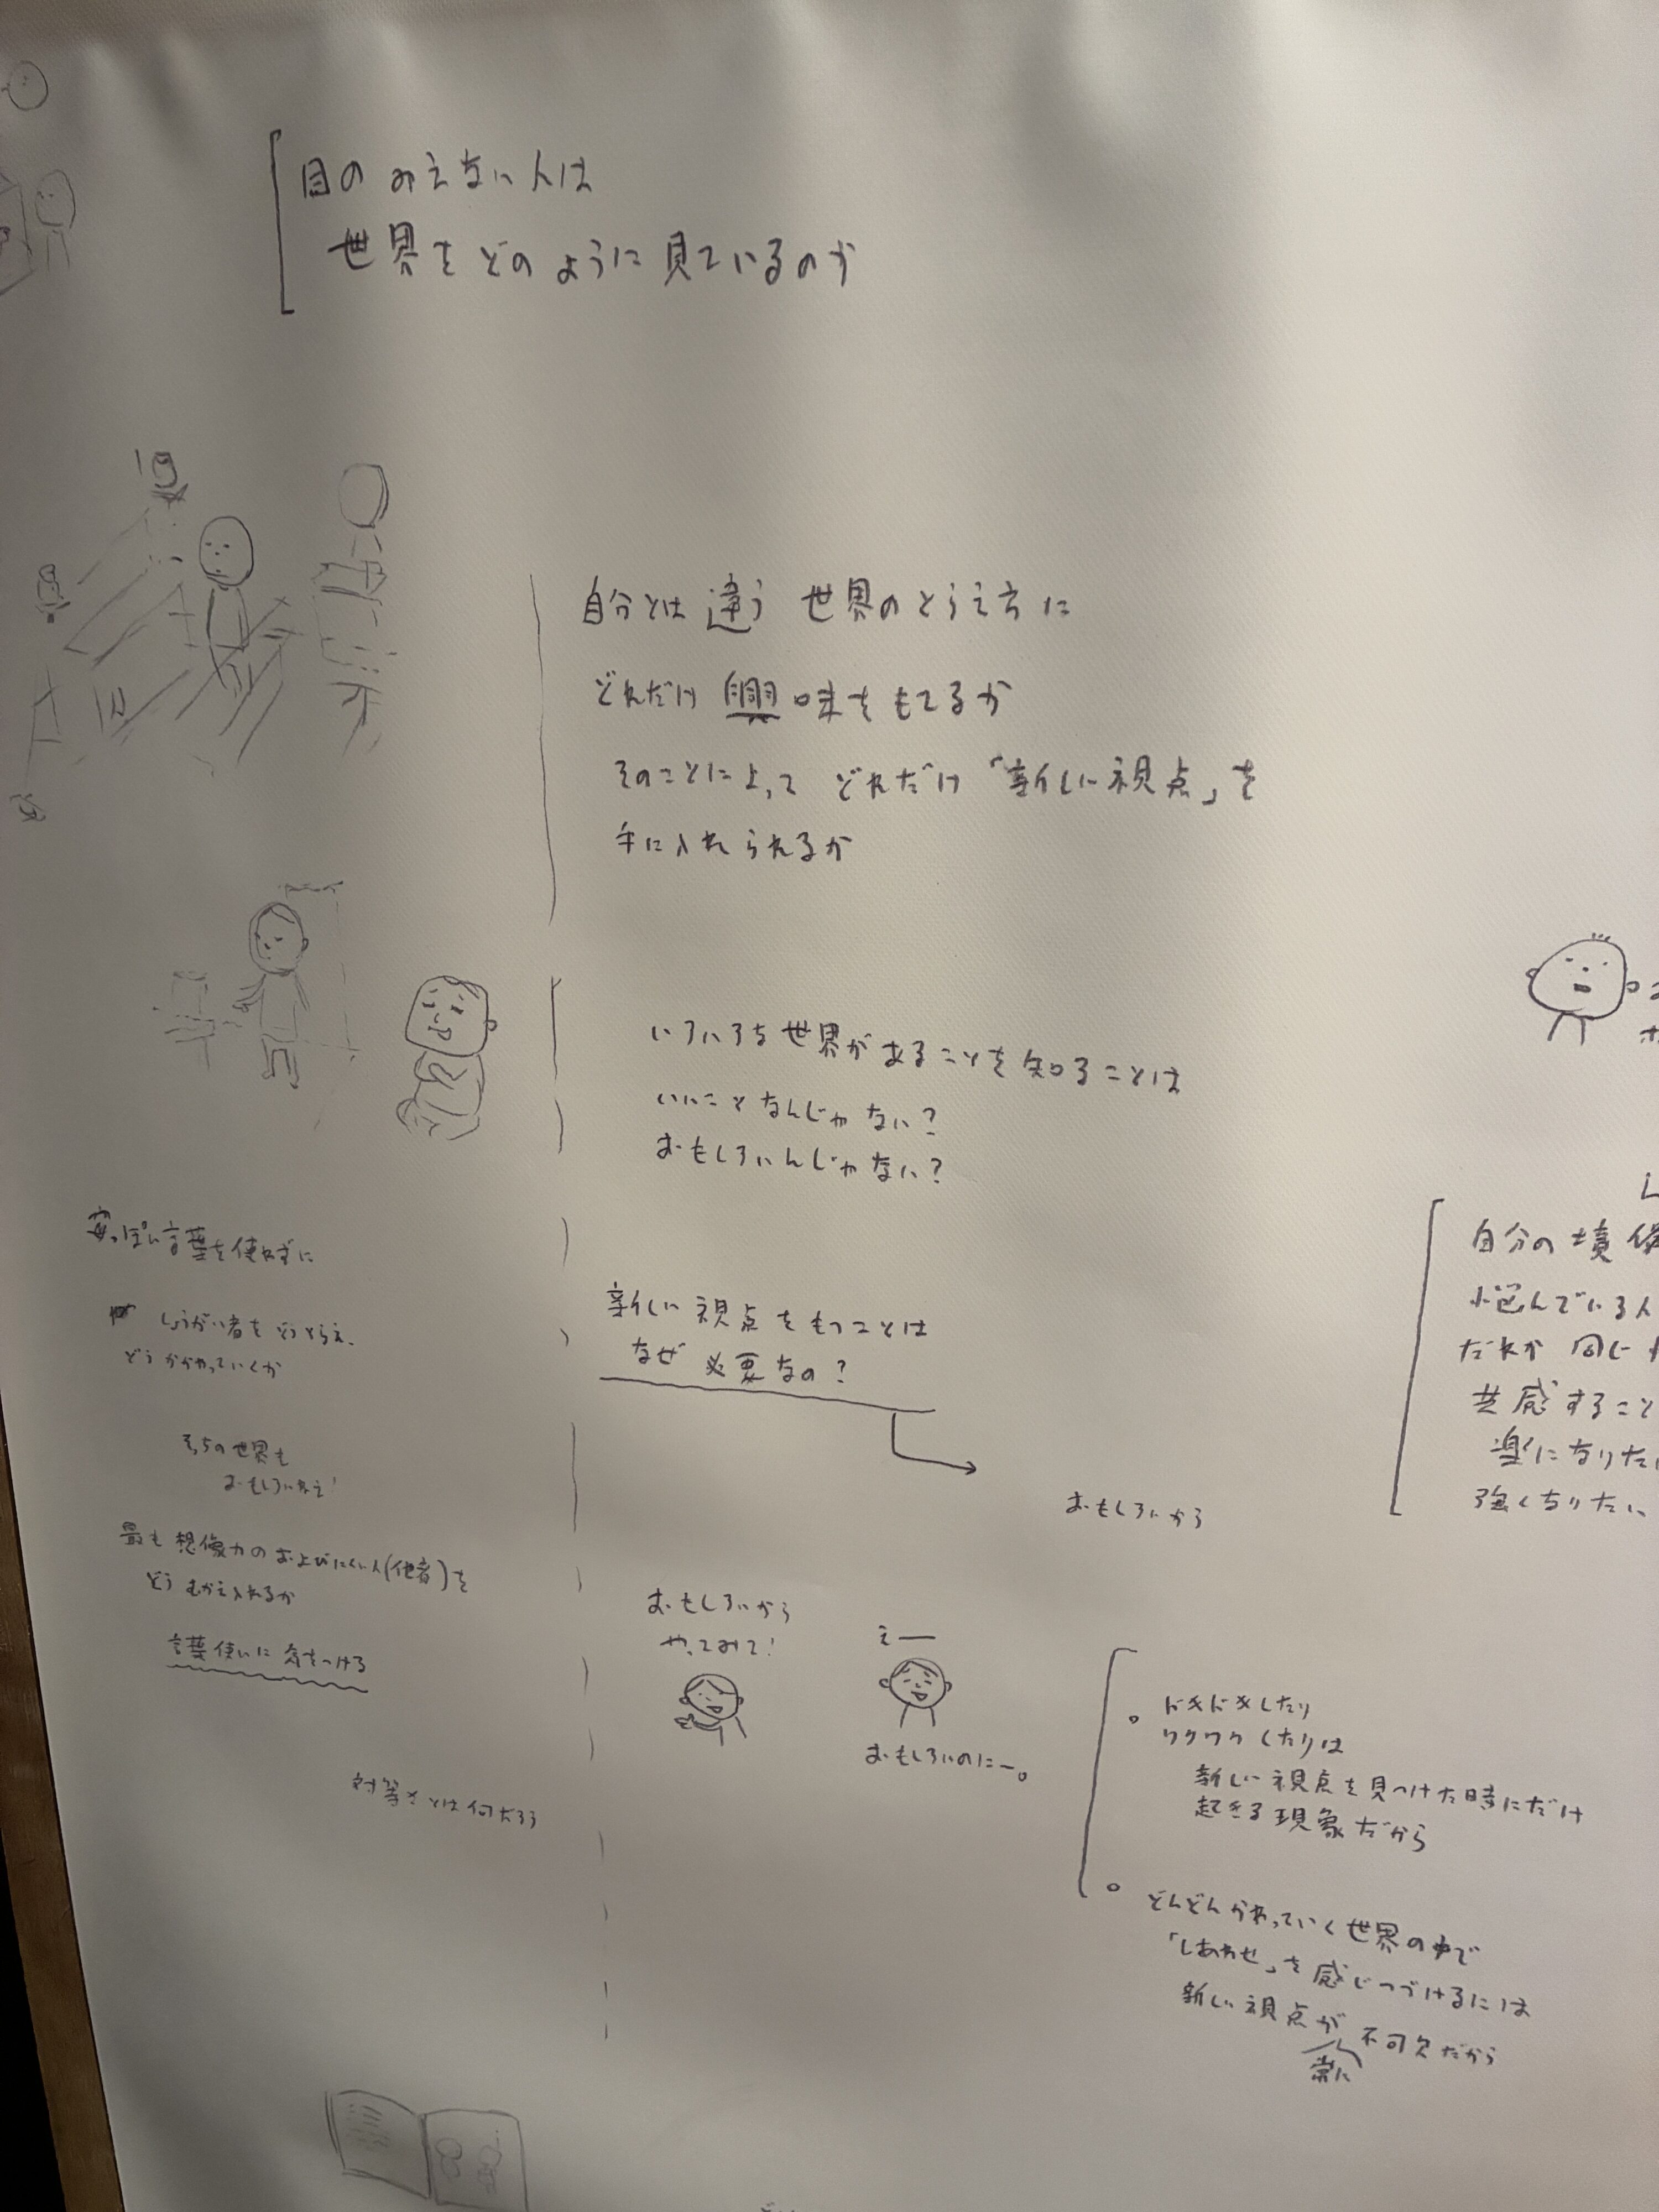 目のみえない人は
世界をどのように見ているのか
自分とは違う 世界のとらえ方に
どれだけ興味をもてるか
そのことによって どれだけ「新しい視点」を
手に入れられるか
いろいろな世界があることを知ることは
いいことなんじゃない?
おもしろいんじゃない?
安っぽい言葉を使わずに
しょうがい者をどうとらえ、
どうかかわっていくか
そっちの世界も
おもしろいねえ!
最も想像力のおよびにくい人(他者)を
どうむかえ入れるか
言葉使いに気をつける
対等さとは何だろう
新しい視点をもつことは
なぜ必要なの?
おもしろいから
おもしろいから
やってみて!
えー
おもしろいのにー。
自分の境
悩んでいる人
だれか同じ
共感すること
楽になりたい
強くなりたい
。ドキドキしたり
ワクワクしたりは
新しい視点を見つけた時にだけ
起きる現象だから
。どんどんかわっていく世界の中で
「しあわせ」を感じつづけるには
新しい視点が 不可欠だから
常に